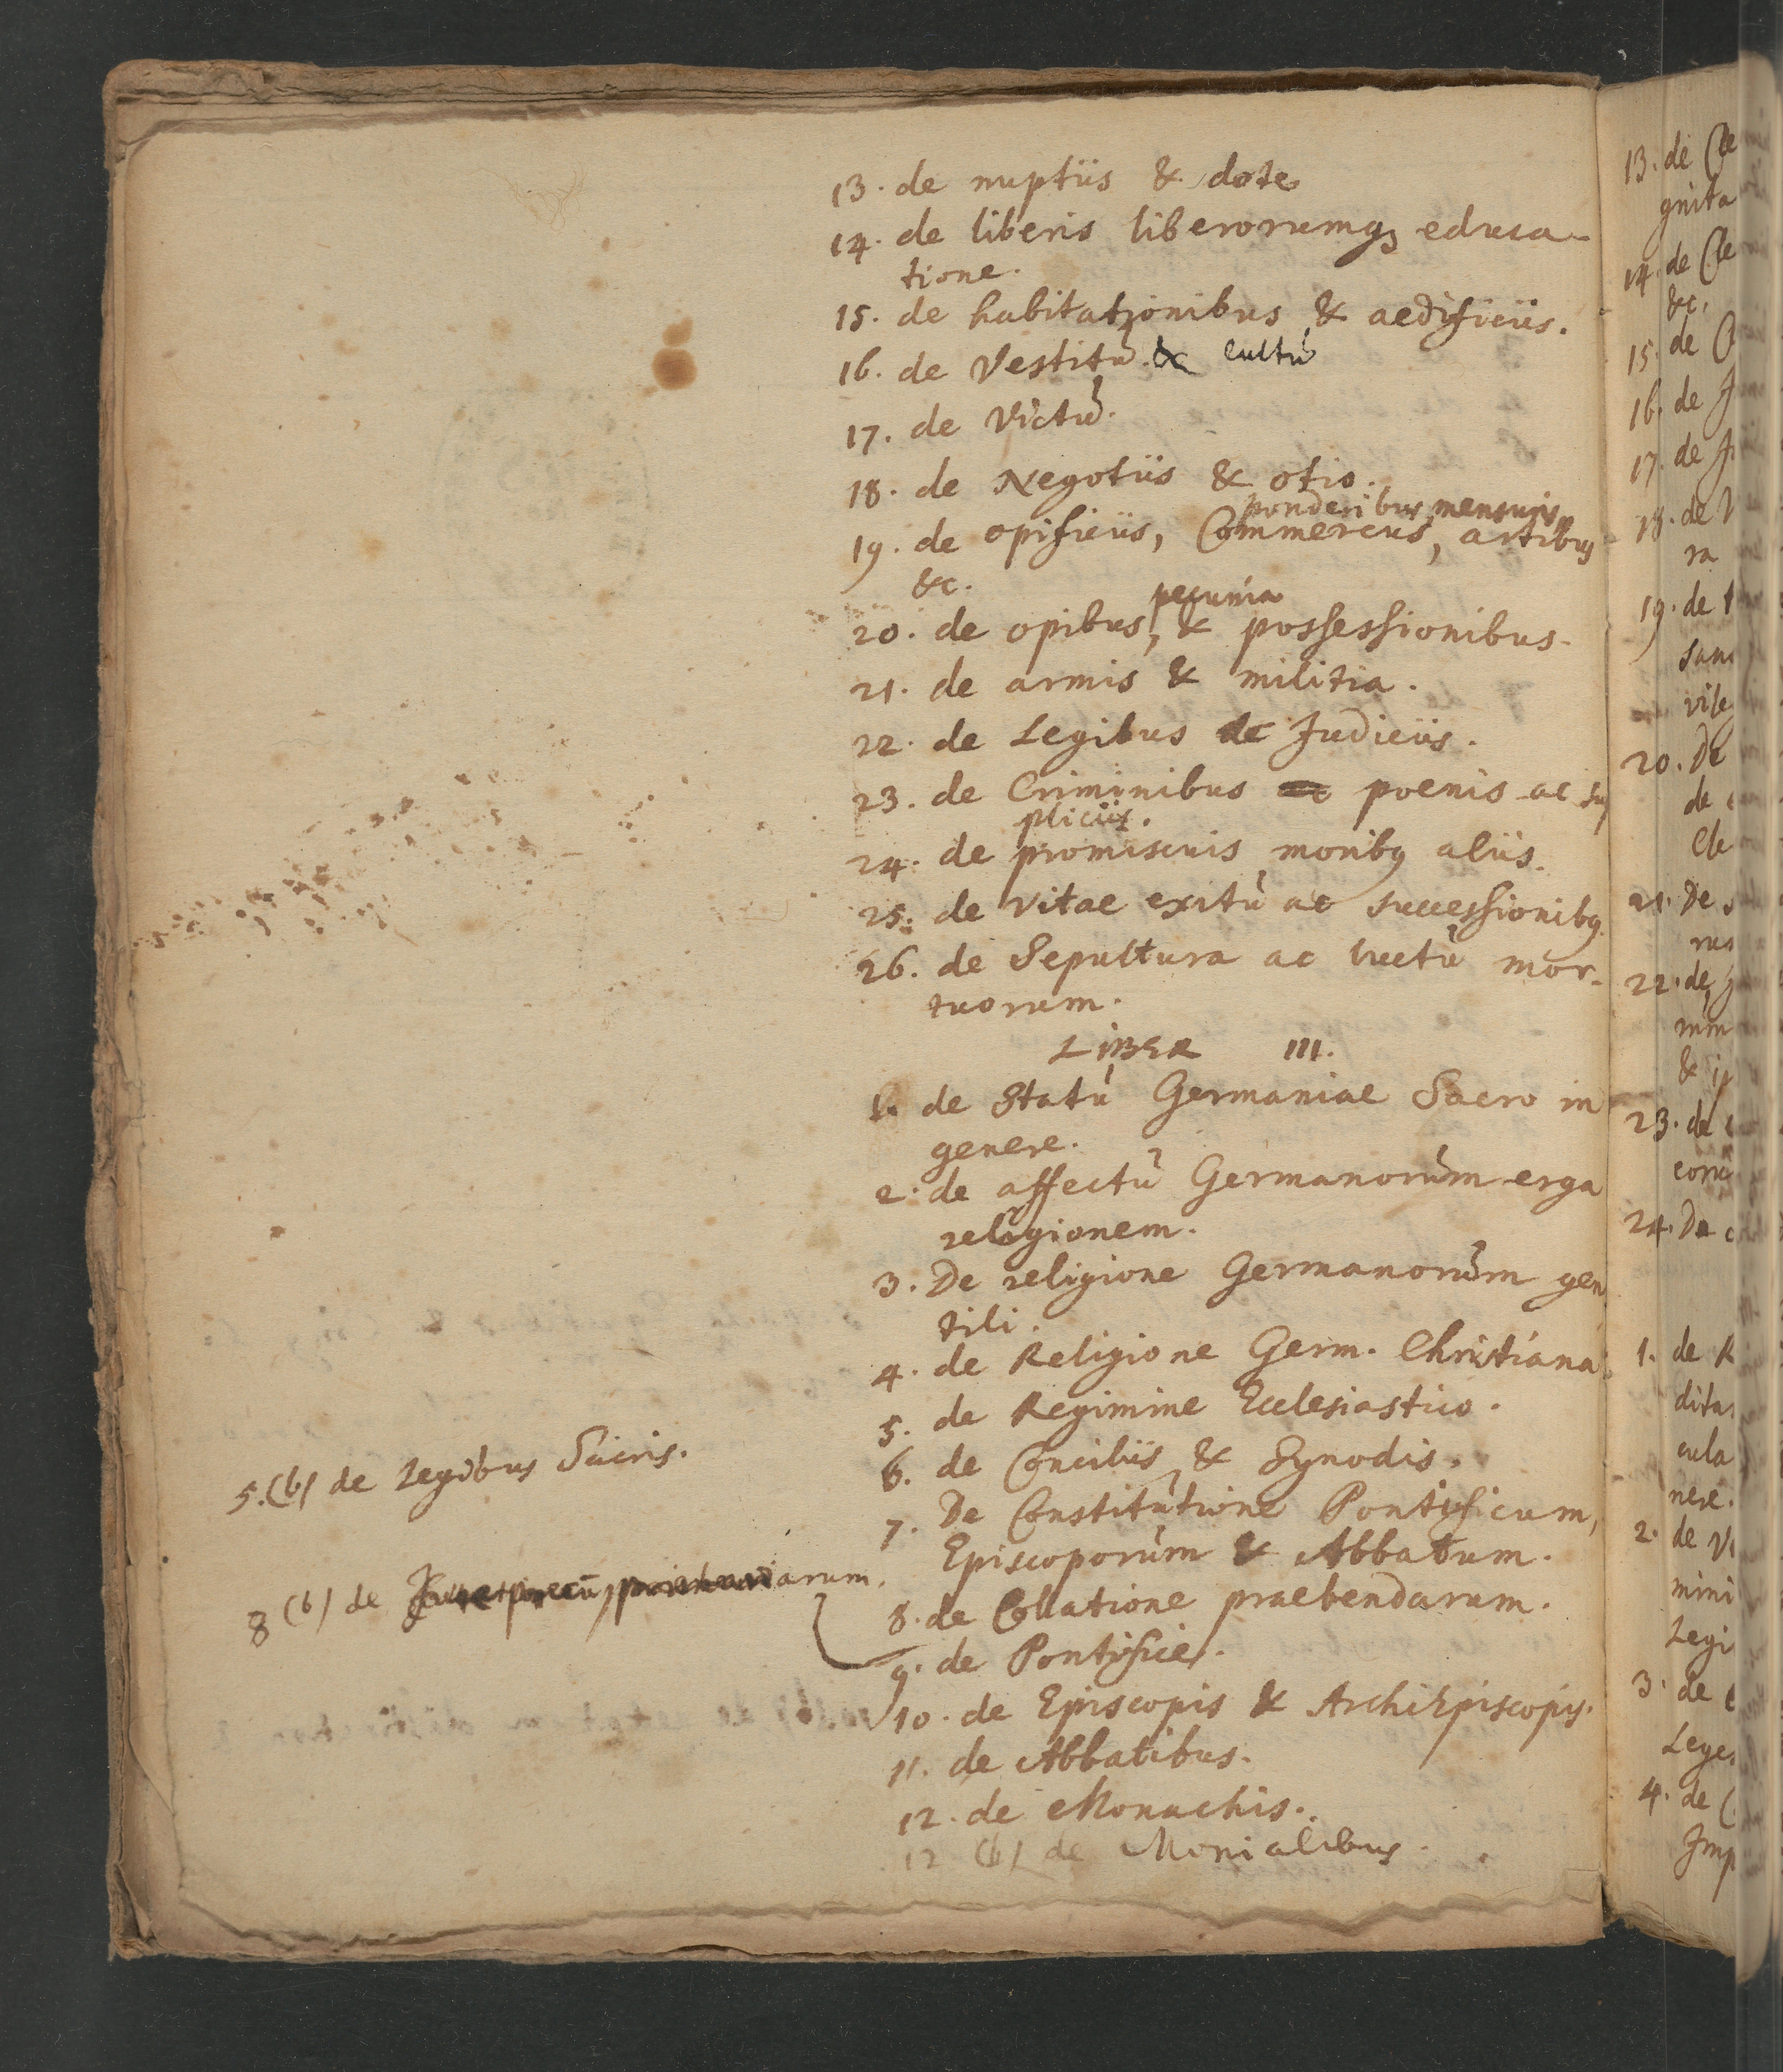 13. de nuptiis & dote
14. de liberis liberorumq; educa-
tione.
15. de habitationibus & aedificiis.
16. de Vestitu & cultu
17. de Victu.
18. de Negotiis & otio.
ponderibus, mensuris,
19. de opificiis, Commerciis, artibus
&c.
pecunia
20. de opibus, & possessionibus.
21. de armis & militia.
22. de Legibus ac Judiciis.
23. de Criminibus poenis ac sup
pliciis.
24. de promiscuis moribq aliis.
25. de vitae exitu ac successionibq.
26. de Sepultura ac luctu mor-
tuorum.
LIBER III.
1. de Statu Germaniae Sacro in
genere.
2. de affectu Germanorum erga
religionem.
3. De religione Germanorum gen
tili.
4. de Religione Germ. Christiana.
5. de Regimine Ecclesiastico.
5.(b) de Legibus Sacris.
6. de Conciliis & Synodis.
7. De Constitutione Pontificum,
Episcoporum & Abbatum.
8 (b) de
8. de Collatione praebendarum.
9. de Pontifice.
10. de Episcopis & ArchiEpiscopis.
11. de Abbatibus.
12. de Monachis.
12 (b) de Monialibus.
13. de Cle
gnita
14. de Cle
&c.
15. de
16. de J
17. de
18. de
ra
19. de
20. De
de
21. De
22. de
& ip
23. de
24. De
1. de R
2. de
mini
Legi
3. de
Leges
4. de
Imp